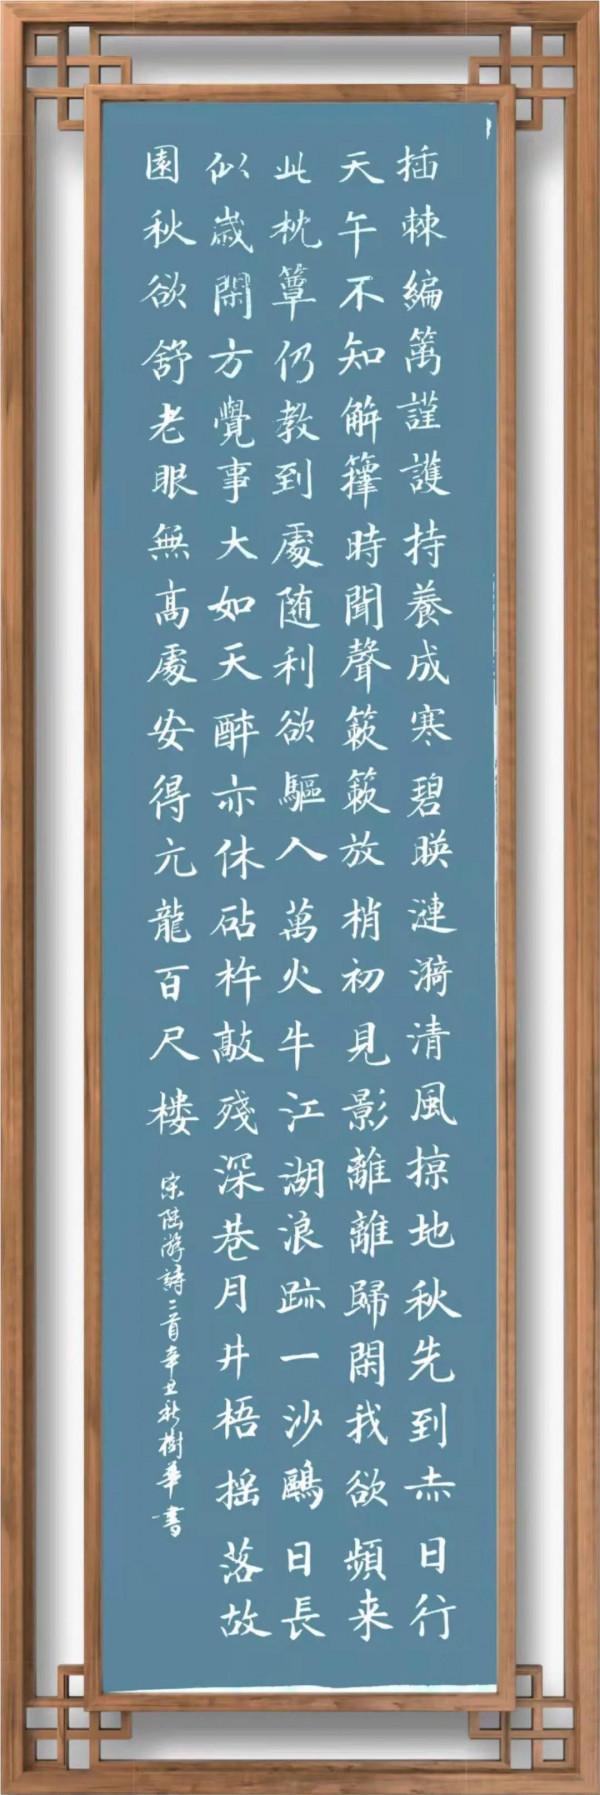 插棘編篱謹護持養成寒碧暎漣漪清風掠地秋先到赤日行
天午不知解籜時聞聲簌簌放梢初見影離離歸閑我欲頻来
此枕簟仍教到處随利欲驅人萬火牛江湖浪跡一沙鷗日長
似歲閑方覺事大如天醉亦休砧杵敲殘深巷月井梧摇落故
園秋欲舒老眼無高處安得元龍百尺楼
宋陸游詩二首辛丑秋樹華書